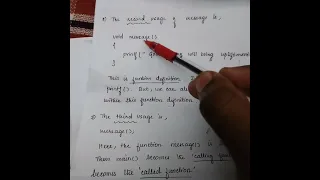 2) The second usage of message is,
void message()
{
printf(" will bring upliftment
}
This is function definition.
printf(). But, we are al
within this function definition.
3) The third usage is,
message();
Here, the function message() is
Then main() becomes the 'calling
becomes the 'called function'